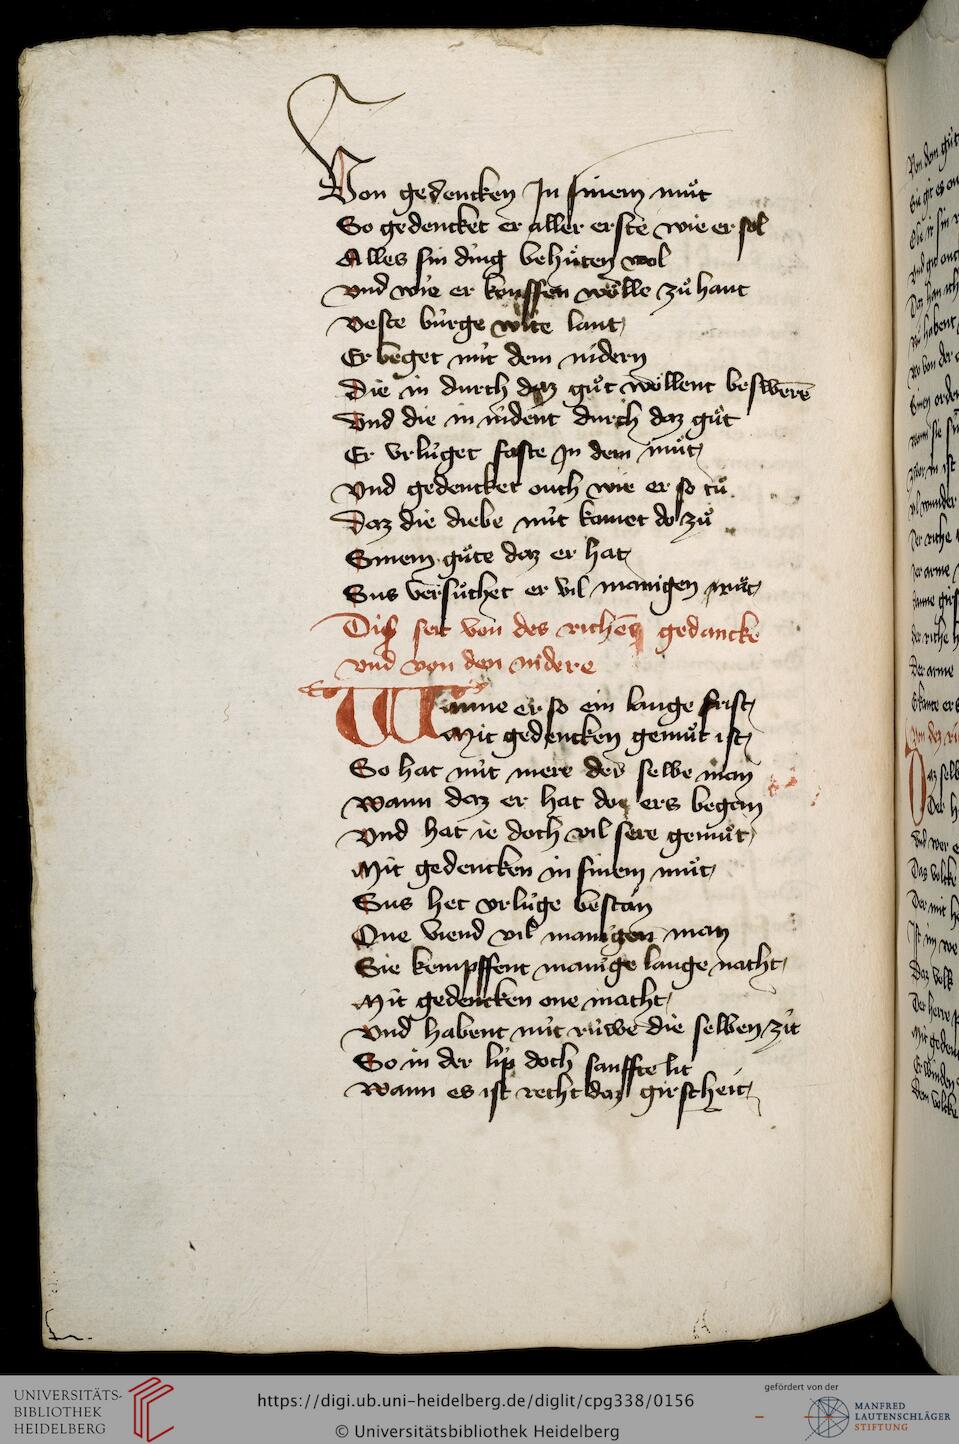 Von gedencken In sinem muͦt
So gedencket er aller erste wie er sol
Alles sin ding behuͤten wol
vnd wie er kouffen woͤlle zuͦ hant
veste búrge wite lant
Er beget mit dem nidern
Die in durch daz guͦt woͤllent beswerē
Vnd die in nident durch daz guͦt
Er vrlúget faste In dem muͦt
Vnd gedencket ouch wie er so tuͦ
Daz die diebe nút komet do zuͦ
Sinem guͦte daz er hat
Sus versuͦchet er vil manigen
Diß seit von des richen gedancke
vnd von den nidere
Wanne er so ein lange frist
Mit gedencken gemuͤt ist
So hat nút mere der selbe man
wann daz er hat do ers began
Vnd hat ie doch vil sere gemuͤt
Mit gedencken in sinem muͦt
Sus het vrlúge bestan
One viend vil manigen man
Sie kempffent manige lange nacht
Mit gedencken one macht
Vnd habent nút rúwe die selben zit
So in der lip doch sanffte lit
wann es ist recht daz girscheit
UNIVERSITÄTS-
BIBLIOTHEK
HEIDELBERG
https://digi.ub.uni-heidelberg.de/diglit/cpg338/0156
© Universitätsbibliothek Heidelberg
gefördert von der
MANFRED
LAUTENSCHLÄGER
STIFTUNG